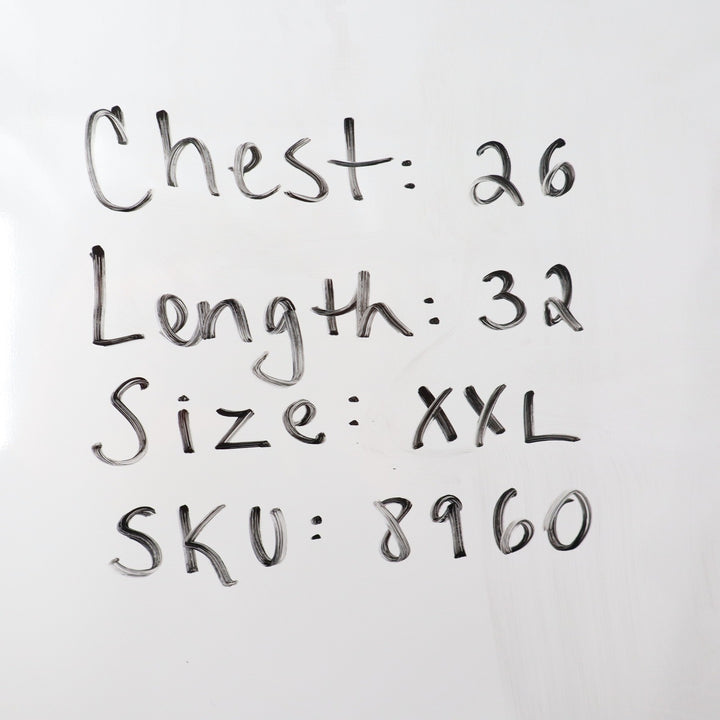 Chest: 26
Length: 32
Size: XXL
SKU: 8960